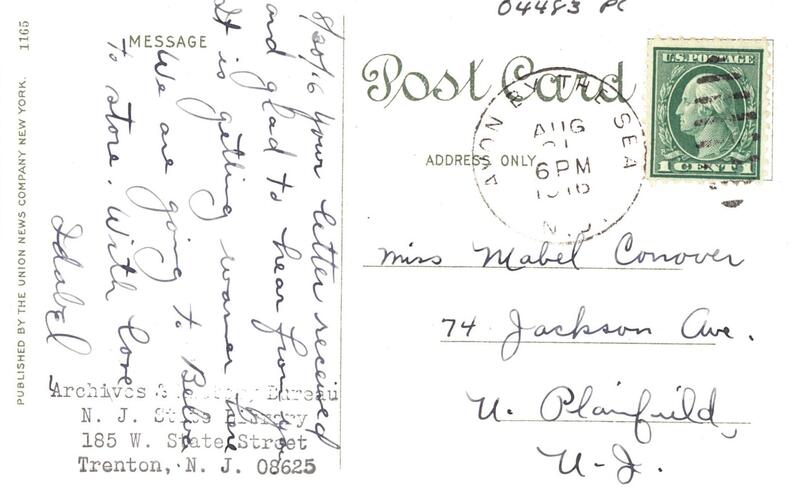 04483 PC
MESSAGE
Post Card
ADDRESS ONLY
U.S.POSTAGE
1 CENT 1
AVON BY THE SEA
AUG
21
6 PM
1916
N.J.
8/20/16 Your letter received
and glad to hear from you
It is getting warmer here
We are going to
to store. With love
Idabel
Miss Mabel Conover
74 Jackson Ave.
N. Plainfield,
N-J.
Archives & History Bureau
N. J. State Library
185 W. State Street
Trenton, N. J. 08625
PUBLISHED BY THE UNION NEWS COMPANY, NEW YORK. 1165